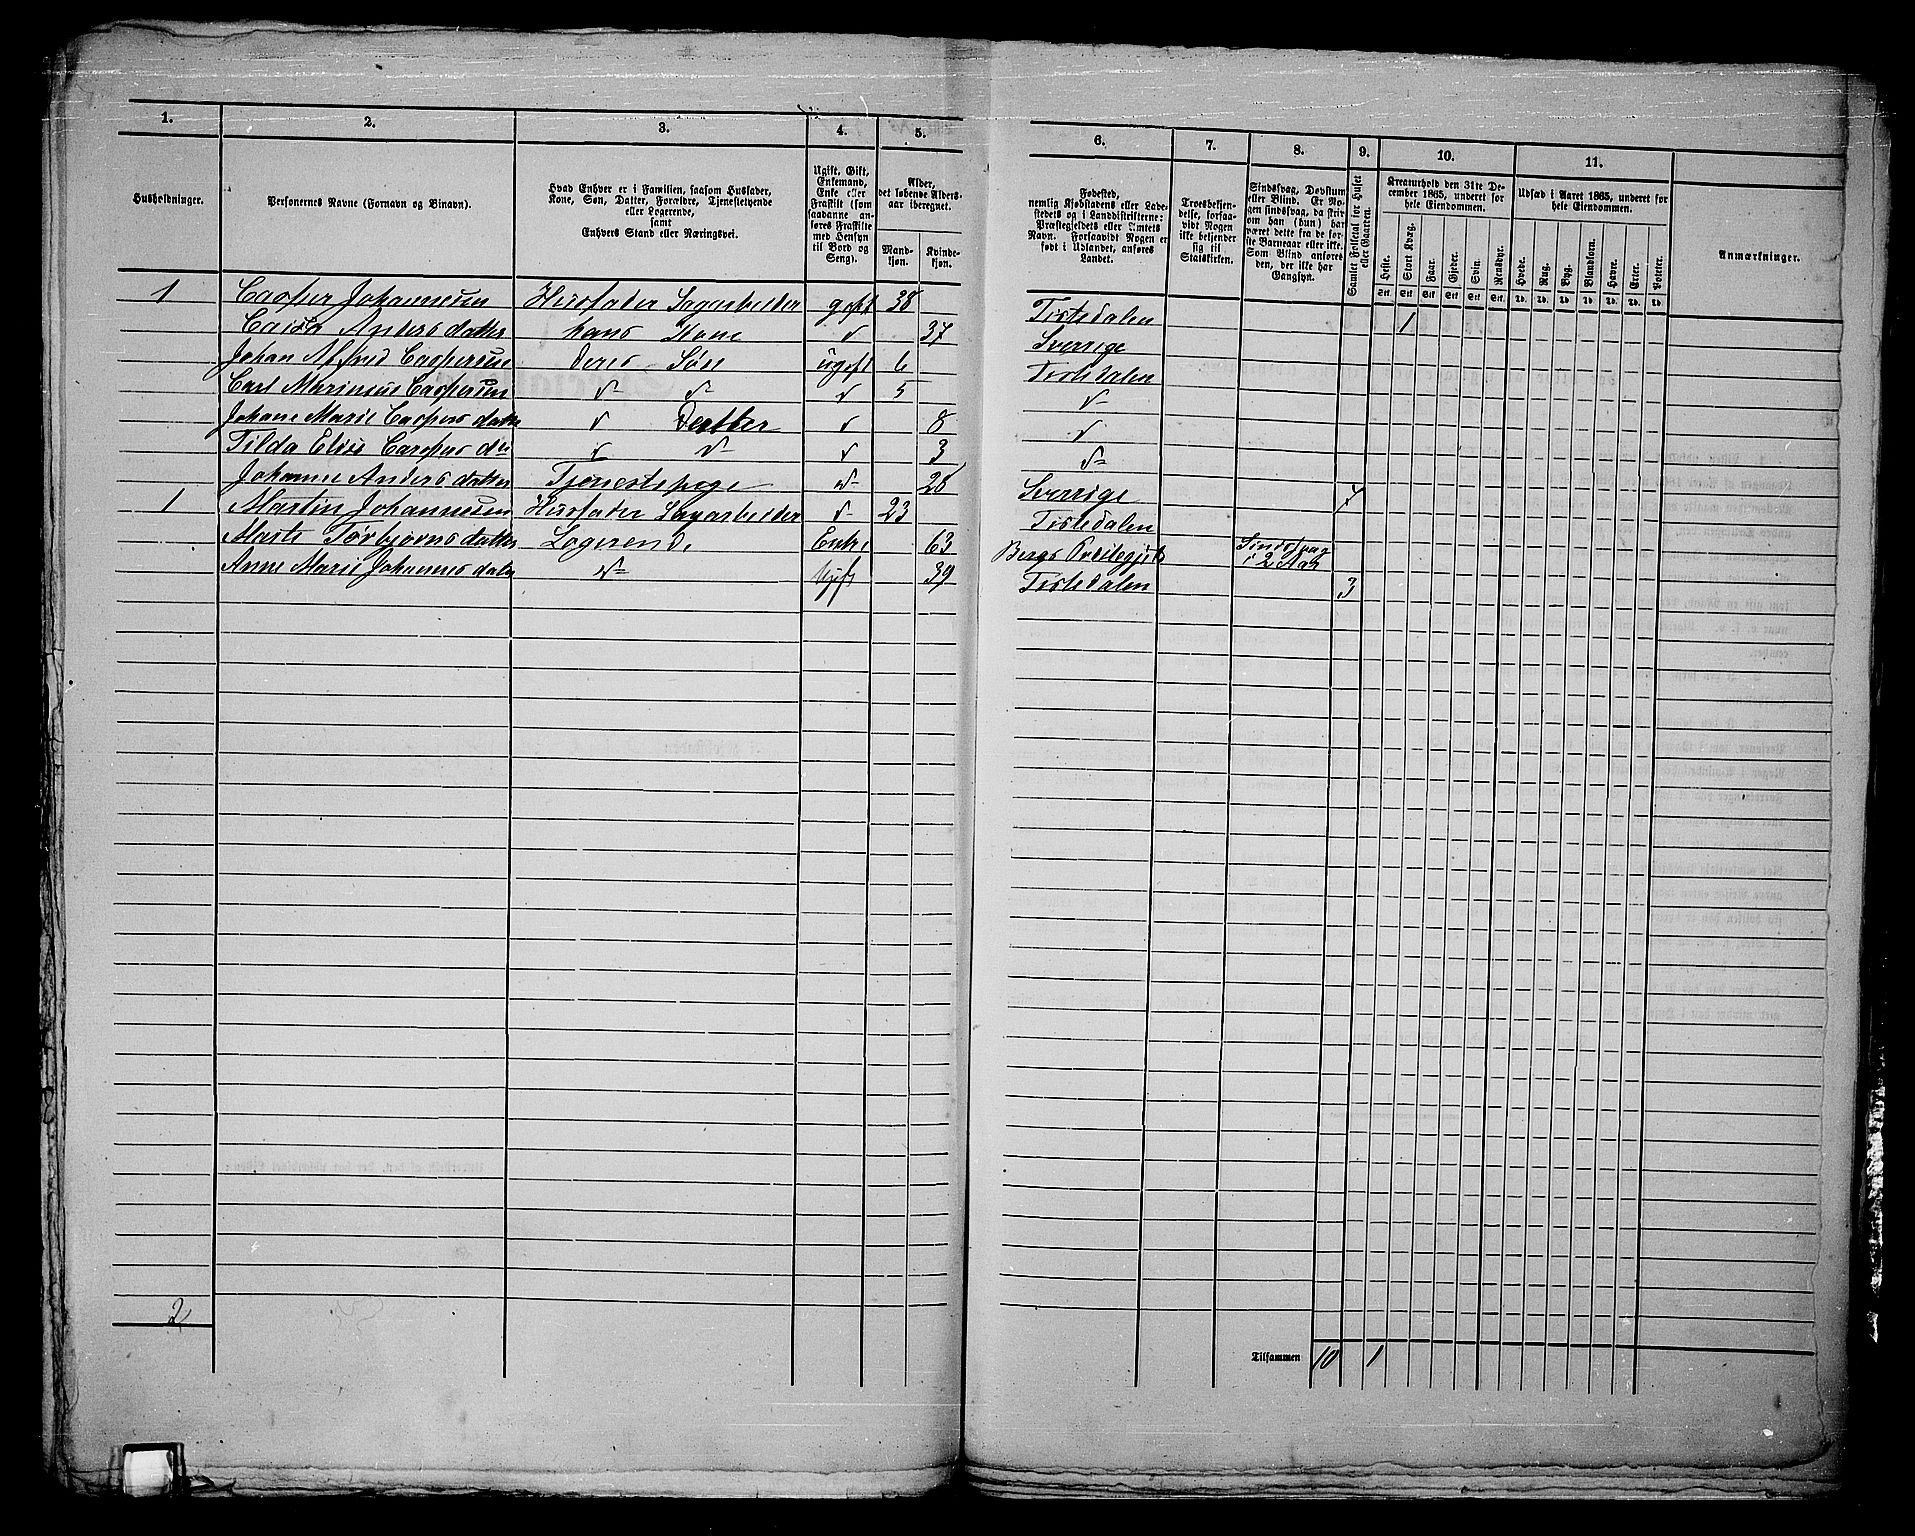 1. 2. 3. 4. 5. 6. 7. 8. 9. 10. 11.
Husholdninger.
Personernes Navne (Fornavn og Binavn).
Hvad Enhver er i Familien, saasom Husfader,
Kone, Søn, Datter, Forældre, Tjenestetyende
eller Logerende,
samt
Enhvers Stand eller Næringsvei.
Ugift, Gift,
Enkemand,
Enke eller
Fraskilt (som
saadanne an-
føres Fraskilte
med Hensyn
til Bord og
Seng).
Alder,
det løbende Alders-
aar iberegnet.
Mand-
kjøn.
Kvinde-
kjøn.
Fødested,
nemlig Kjøbstadens eller Lade-
stedets og i Landdistrikterne:
Præstegjeldets eller Amtets
Navn. Forsaavidt Nogen er
født i Udlandet, anføres
Landet.
Troesbekjen-
delse, forsaa-
vidt Nogen
ikke bekjender
sig til
Statskirken.
Sindssvag, Døvstum
eller Blind. Er No-
gen sindssvag, da skriv
om han (hun) har
været dette fra de før-
ste Barneaar eller ikke.
Som Blind anføres
den, der ikke har
Gangsyn.
Samlet Folketal for Huset
eller Gaarden.
Kreaturhold den 31te De-
cember 1865, underet for
hele Eiendommen.
Heste. Stort Kvæg. Faar. Gjeder. Svin. Rensdyr.
Stk. Stk. Stk. Stk. Stk. Stk.
Udsæd i Aaret 1865, underet for
hele Eiendommen.
Hvede. Rug. Byg. Blandkorn. Havre. Erter. Poteter.
Td. Td. Td. Td. Td. Td. Td.
Anmærkninger.
1 Casper Johannesen Husfader Sagarbeider gift 38 Tistedalen 1
Caisa Andersdatter hans Kone 37 Sverrige
Johan Alfred Caspersen Deres Søn ugift 6 Tistedalen
Carl Marinius Caspersen 5
Johane Marie Caspersdatter Datter 8
Tilda Elise Caspersdtr 3
Johanne Andersdatter Tjenestepige 28 Sverrige 7
1 Martin Johannesen Husfader Sagarbeider 23 Tistedalen
Marte Torbjørnsdatter Logerende Enke 63 Bergs Prestegjeld Sindssvag
i 2 Aar
Anne Marie Johannesdatter Ugift 39 Tistedalen 3
2
Tilsammen 10 1